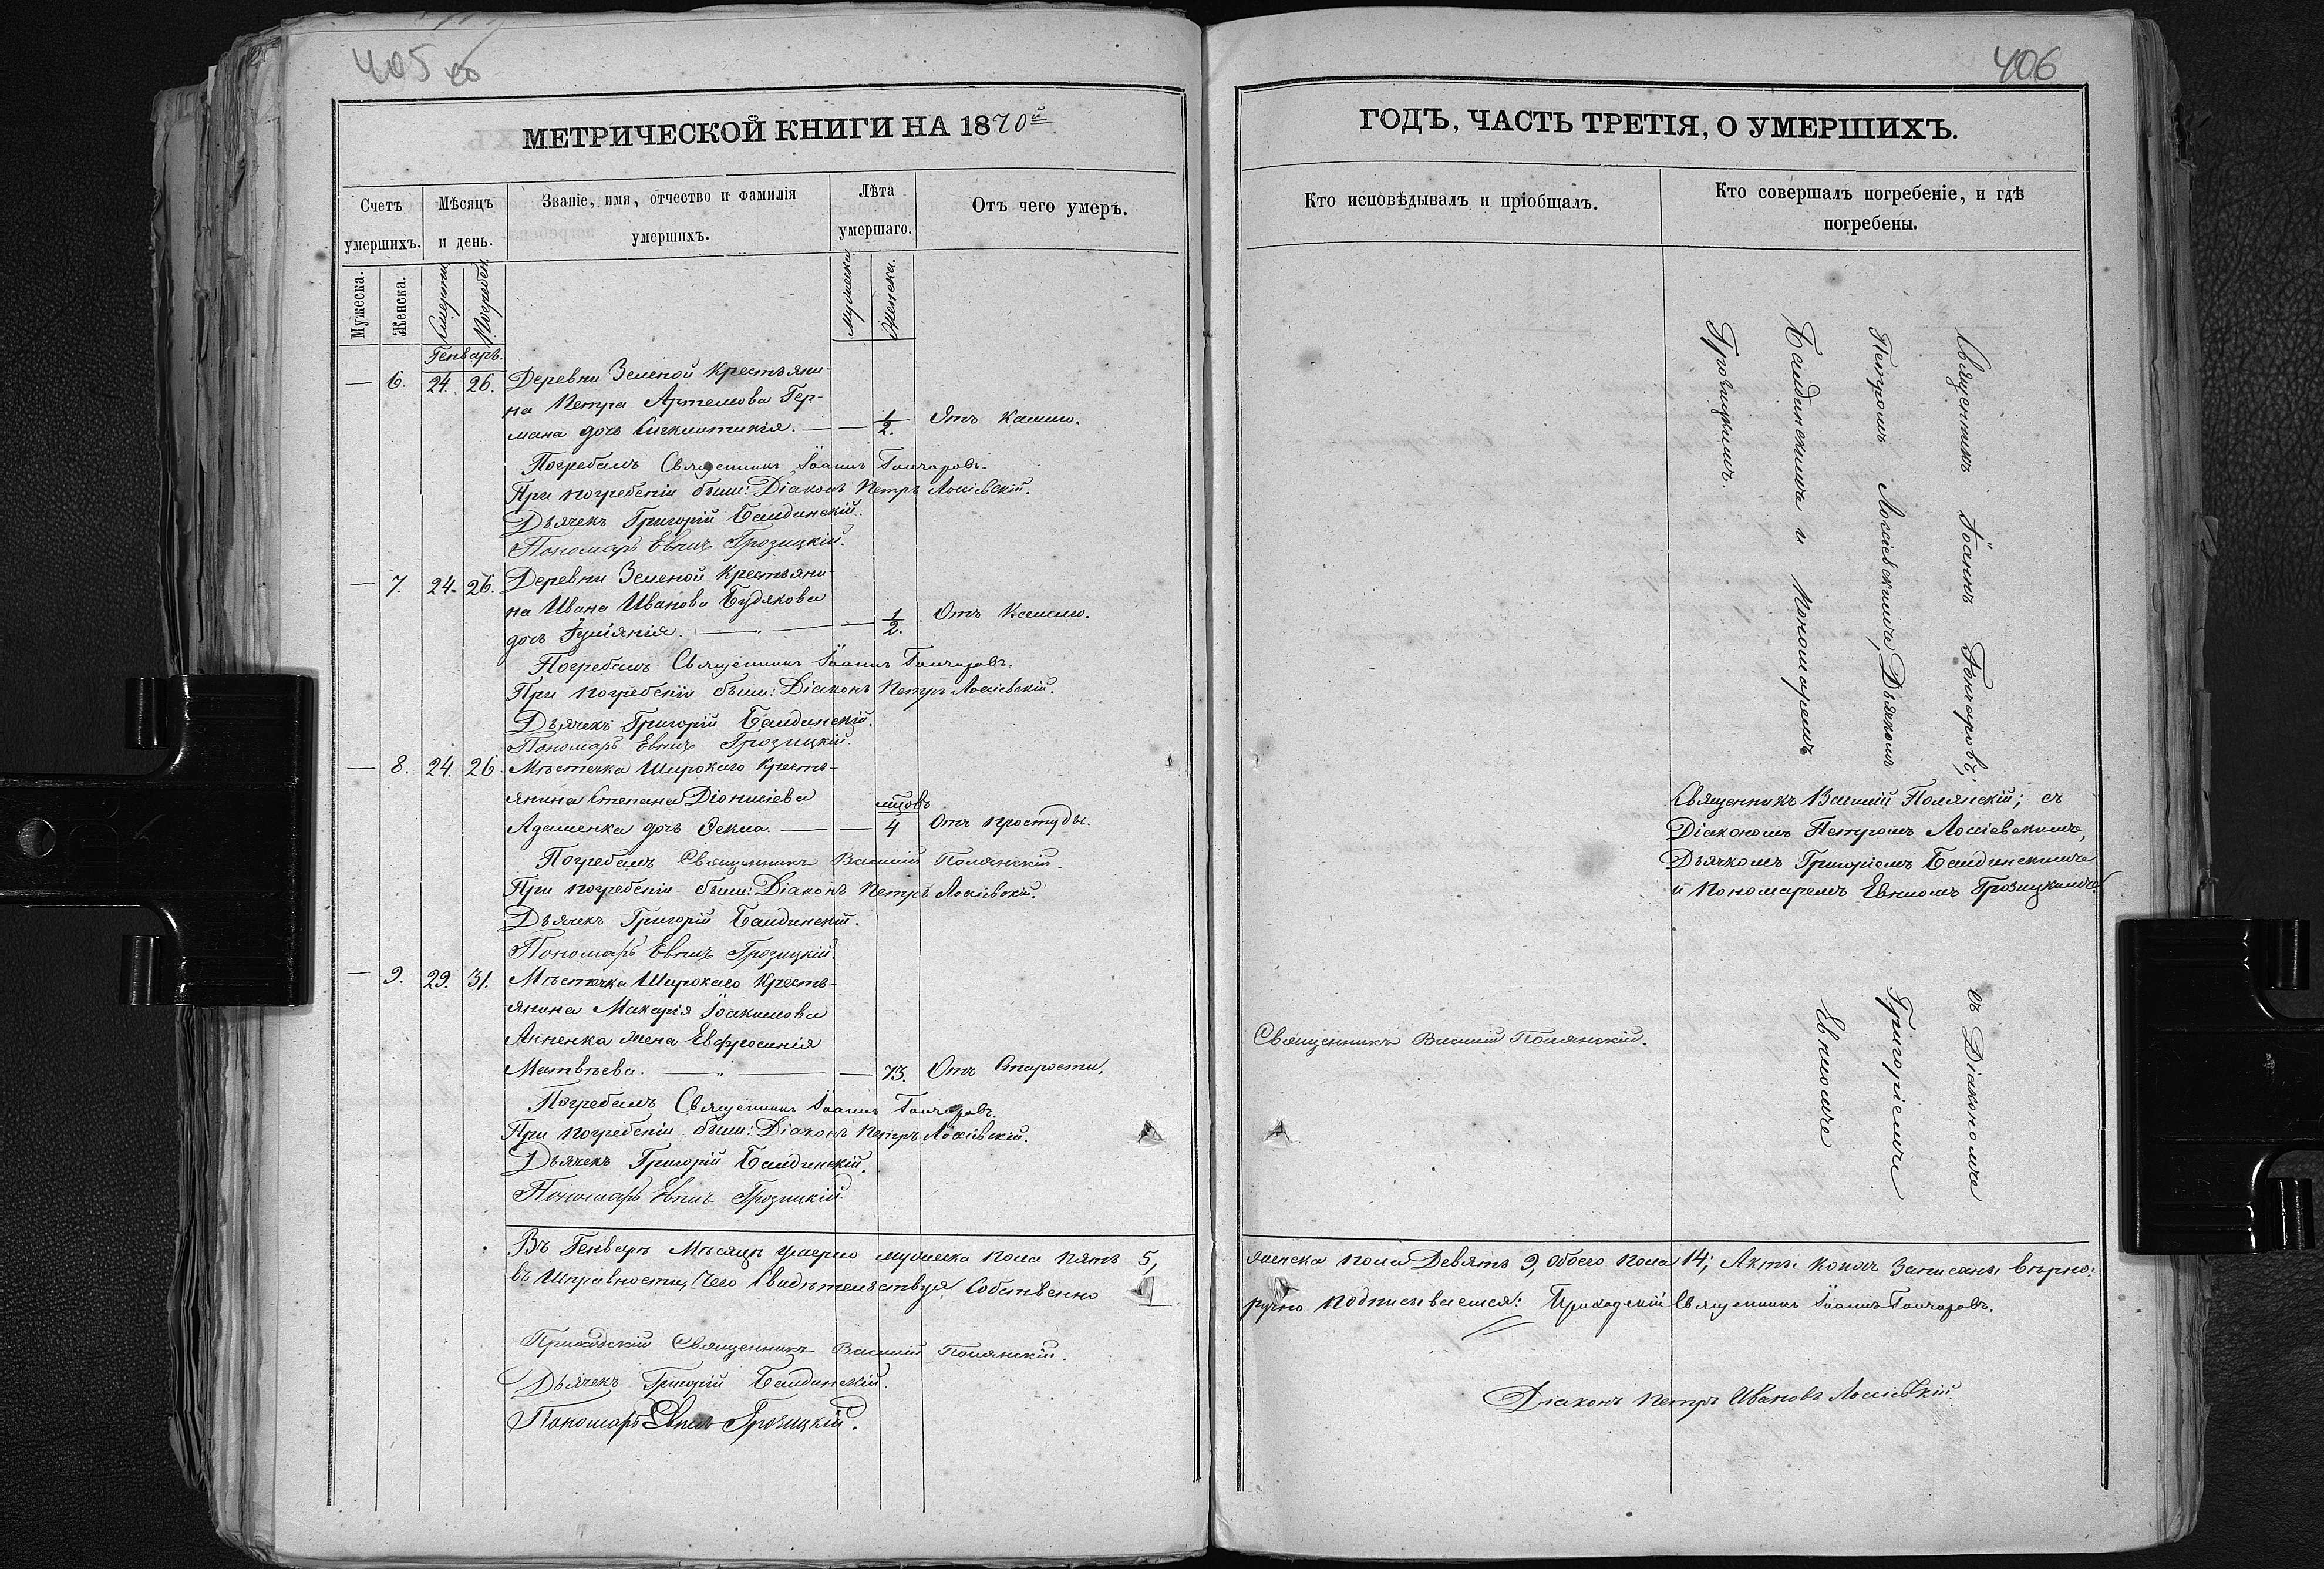 405 об
МЕТРИЧЕСКОЙ КНИГИ НА 1870й
Счетъ умершихъ.
Мѣсяцъ и день.
Званіе, имя, отчество и фамилія умершихъ.
Лѣта умершаго.
Отъ чего умеръ.
Мужеска.
Женска.
Смерти
Погребен.
Мужеска
Женска.
Генварь.
— 6. 24. 26. Деревни Зеленой Крестьяни-
на Петра Артемова Гер-
мана дочь — — 1/2. Отъ Кашлю.
Погребалъ Священникъ Іоаннъ Гончаровъ.
При погребеніи были: Діаконъ Петръ Лосіевскій.
Дьячекъ Григорій Балдинскій.
Пономарь Евпмъ Грозицкій.
— 7. 24. 26. Деревни Зеленой Крестьяни-
на Ивана Иванова Будякова
дочь Іуліянія. — — 1/2. Отъ Кашлю.
Погребалъ Священникъ Іоаннъ Гончаровъ.
При погребеніи были: Діаконъ Петръ Лосіевскій.
Дьячекъ Григорій Балдинскій.
Пономарь Грозицкій.
— 8. 24. 26. Мѣстечка Широкаго Кресть-
янина Степана Діонисіева
Адаменка дочь Фекла. — — мцовъ 4 Отъ простуды.
Погребалъ Священникъ Василій Полянскій.
При погребеніи были: Діаконъ Петръ Лосіевскій.
Дьячекъ Григорій Балдинскій.
Пономарь Грозицкій.
— 9. 29. 31. Мѣстечка Широкаго Кресть-
янина Макарія Іоакимова
Анненка жена Евфросинія
Матвѣева. — — 73. Отъ Старости.
Погребалъ Священникъ Іоаннъ Гончаровъ.
При погребеніи были: Діаконъ Петръ Лосіевскій.
Дьячекъ Григорій Балдинскій.
Пономарь Грозицкій.
Въ Генварѣ Мѣсяцѣ умерло мужеска пола пять 5,
въ Исправности, Чего Свидѣтельствуя Собственно
Приходскій Священникъ Василій Полянскій.
Дьячекъ Григорій Балдинскій.
Пономарь Грозицкій.
406
ГОДЪ, ЧАСТЬ ТРЕТІЯ, О УМЕРШИХЪ.
Кто исповѣдывалъ и пріобщалъ.
Кто совершалъ погребеніе, и гдѣ
погребены.
Священникъ Іоаннъ Гончаровъ,
Петромъ Лосіевскимъ, Дьячкомъ
Балдинскимъ и пономаремъ
Грозицкимъ.
Священникъ Василій Полянскій; съ
Діакономъ Петромъ Лосіевскимъ,
Дьячкомъ Григоріемъ Балдинскимъ
и Пономаремъ Грозицкимъ.
съ Діакономъ
Григоріемъ
Священникъ Василій Полянскій.
женска пола Девять 9, обоего пола 14; Акты записаны вѣрно:
ручно подписываемся: Приходскій Священникъ Іоаннъ Гончаровъ.
Діаконъ Петръ Ивановъ Лосіевскій.